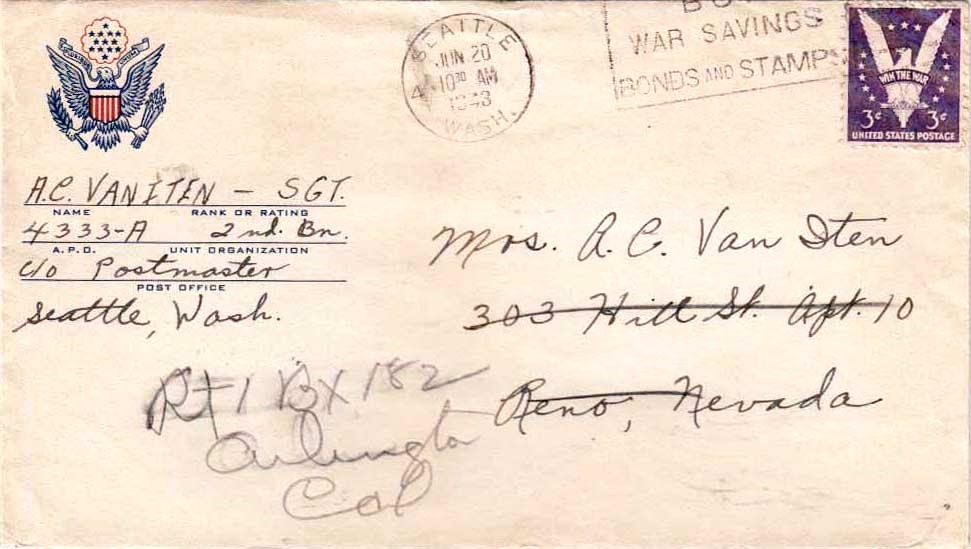 SEATTLE
JUN 20
10 30 AM
1943
WASH.
WAR SAVINGS
BONDS AND STAMPS
WIN THE WAR
3¢ 3¢
UNITED STATES POSTAGE
A.C. VAN ITEN — SGT.
NAME RANK OR RATING
4333-A 2nd. Bn.
A.P.O. UNIT ORGANIZATION
c/o Postmaster
POST OFFICE
Seattle, Wash.
Mrs. A. C. Van Iten
303 Hill St. Apt. 10
Reno, Nevada
Rt 1 Bx 182
Arlington
Cal